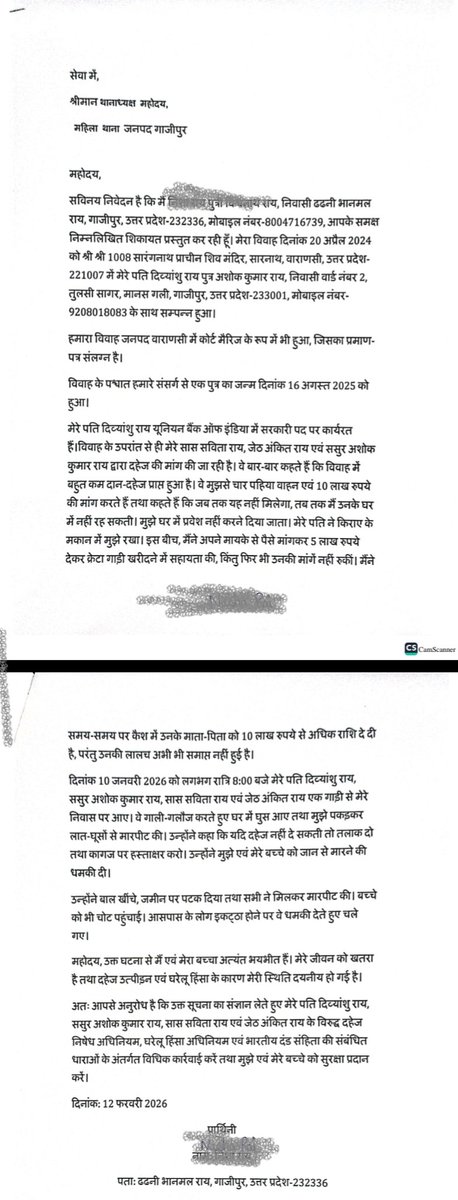 सेवा में,
श्रीमान थानाध्यक्ष महोदय,
महिला थाना जनपद गाजीपुर
महोदय,
सविनय निवेदन है कि मैं राय, निवासी ढढनी भानमल
राय, गाजीपुर, उत्तर प्रदेश-232336, मोबाइल नंबर-8004716739, आपके समक्ष
निम्नलिखित शिकायत प्रस्तुत कर रही हूँ। मेरा विवाह दिनांक 20 अप्रैल 2024
को श्री श्री 1008 सारंगनाथ प्राचीन शिव मंदिर, सारनाथ, वाराणसी, उत्तर प्रदेश-
221007 में मेरे पति दिव्यांशु राय पुत्र अशोक कुमार राय, निवासी वार्ड नंबर 2,
तुलसी सागर, मानस गली, गाजीपुर, उत्तर प्रदेश-233001, मोबाइल नंबर-
9208018083 के साथ सम्पन्न हुआ।
हमारा विवाह जनपद वाराणसी में कोर्ट मैरिज के रूप में भी हुआ, जिसका प्रमाण-
पत्र संलग्न है।
विवाह के पश्चात हमारे संसर्ग से एक पुत्र का जन्म दिनांक 16 अगस्त 2025 को
हुआ।
मेरे पति दिव्यांशु राय यूनियन बैंक ऑफ इंडिया में सरकारी पद पर कार्यरत
हैं।विवाह के उपरांत से ही मेरे सास सविता राय, जेठ अंकित राय एवं ससुर अशोक
कुमार राय द्वारा दहेज की मांग की जा रही है। वे बार-बार कहते हैं कि विवाह में
बहुत कम दान-दहेज प्राप्त हुआ है। वे मुझसे चार पहिया वाहन एवं 10 लाख रुपये
की मांग करते हैं तथा कहते हैं कि जब तक यह नहीं मिलेगा, तब तक मैं उनके घर
में नहीं रह सकती। मुझे घर में प्रवेश नहीं करने दिया जाता। मेरे पति ने किराए के
मकान में मुझे रखा। इस बीच, मैंने अपने मायके से पैसे मांगकर 5 लाख रुपये
देकर क्रेटा गाड़ी खरीदने में सहायता की, किंतु फिर भी उनकी मांगें नहीं रुकीं। मैंने
CS CamScanner
समय-समय पर कैश में उनके माता-पिता को 10 लाख रुपये से अधिक राशि दे दी
है, परंतु उनकी लालच अभी भी समाप्त नहीं हुई है।
दिनांक 10 जनवरी 2026 को लगभग रात्रि 8:00 बजे मेरे पति दिव्यांशु राय,
ससुर अशोक कुमार राय, सास सविता राय एवं जेठ अंकित राय एक गाड़ी से मेरे
निवास पर आए। वे गाली-गलौज करते हुए घर में घुस आए तथा मुझे पकड़कर
लात-घूसों से मारपीट की। उन्होंने कहा कि यदि दहेज नहीं दे सकती तो तलाक दो
तथा कागज पर हस्ताक्षर करो। उन्होंने मुझे एवं मेरे बच्चे को जान से मारने की
धमकी दी।
उन्होंने बाल खींचे, जमीन पर पटक दिया तथा सभी ने मिलकर मारपीट की। बच्चे
को भी चोट पहुंचाई। आसपास के लोग इकट्ठा होने पर वे धमकी देते हुए चले
गए।
महोदय, उक्त घटना से मैं एवं मेरा बच्चा अत्यंत भयभीत हैं। मेरे जीवन को खतरा
है तथा दहेज उत्पीड़न एवं घरेलू हिंसा के कारण मेरी स्थिति दयनीय हो गई है।
अतः आपसे अनुरोध है कि उक्त सूचना का संज्ञान लेते हुए मेरे पति दिव्यांशु राय,
ससुर अशोक कुमार राय, सास सविता राय एवं जेठ अंकित राय के विरुद्ध दहेज
निषेध अधिनियम, घरेलू हिंसा अधिनियम एवं भारतीय दंड संहिता की संबंधित
धाराओं के अंतर्गत विधिक कार्रवाई करें तथा मुझे एवं मेरे बच्चे को सुरक्षा प्रदान
करें।
दिनांक: 12 फरवरी 2026
प्रार्थिनी
पता: ढढनी भानमल राय, गाजीपुर, उत्तर प्रदेश-232336